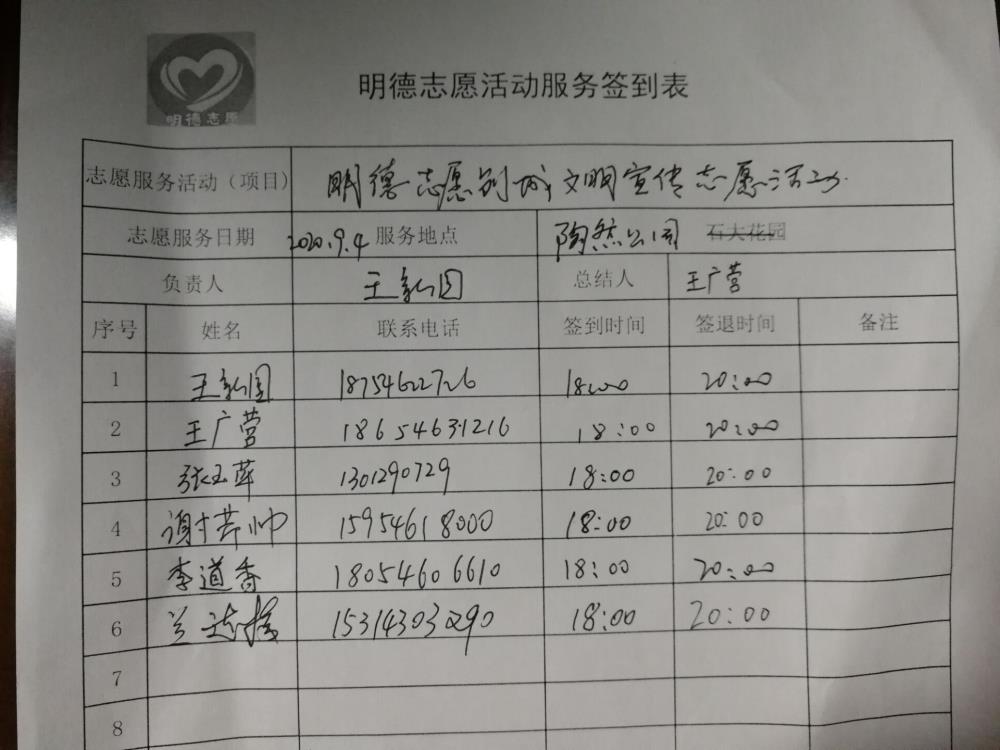 明德志愿
明德志愿活动服务签到表
志愿服务活动（项目） 明德志愿创城文明宣传志愿活动.
志愿服务日期 2020.9.4 服务地点 陶然公园 石大花园
负责人 王 总结人 王广营
序号 姓名 联系电话 签到时间 签退时间 备注
1 王 18754622726 18:00 20:00
2 王广营 18654631216 18:00 20:00
3 张玉萍 1301290729 18:00 20:00
4 谢 帅 15954618000 18:00 20:00
5 李道香 18054606610 18:00 20:00
6 兰 15314303290 18:00 20:00
7
8